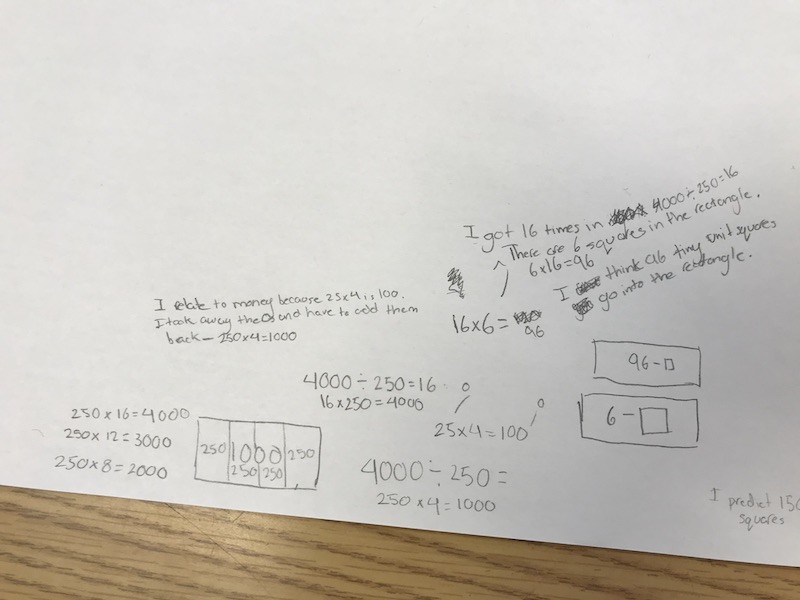 I got 16 times in 4000÷250=16
There are 6 squares in the rectangle.
6x16=96
I think 96 tiny unit squares
go into the rectangle.
16x6=
96
I relate to money because 25x4 is 100.
I took away the 0s and have to add them
back - 250x4=1000
96-□
6-□
4000÷250=16
16x250=4000
0
0
25x4=100
250x16=4000
250x12=3000
250x8=2000
250 1000 250
250 250
4000÷250=
250x4=1000
I predict 150
squares